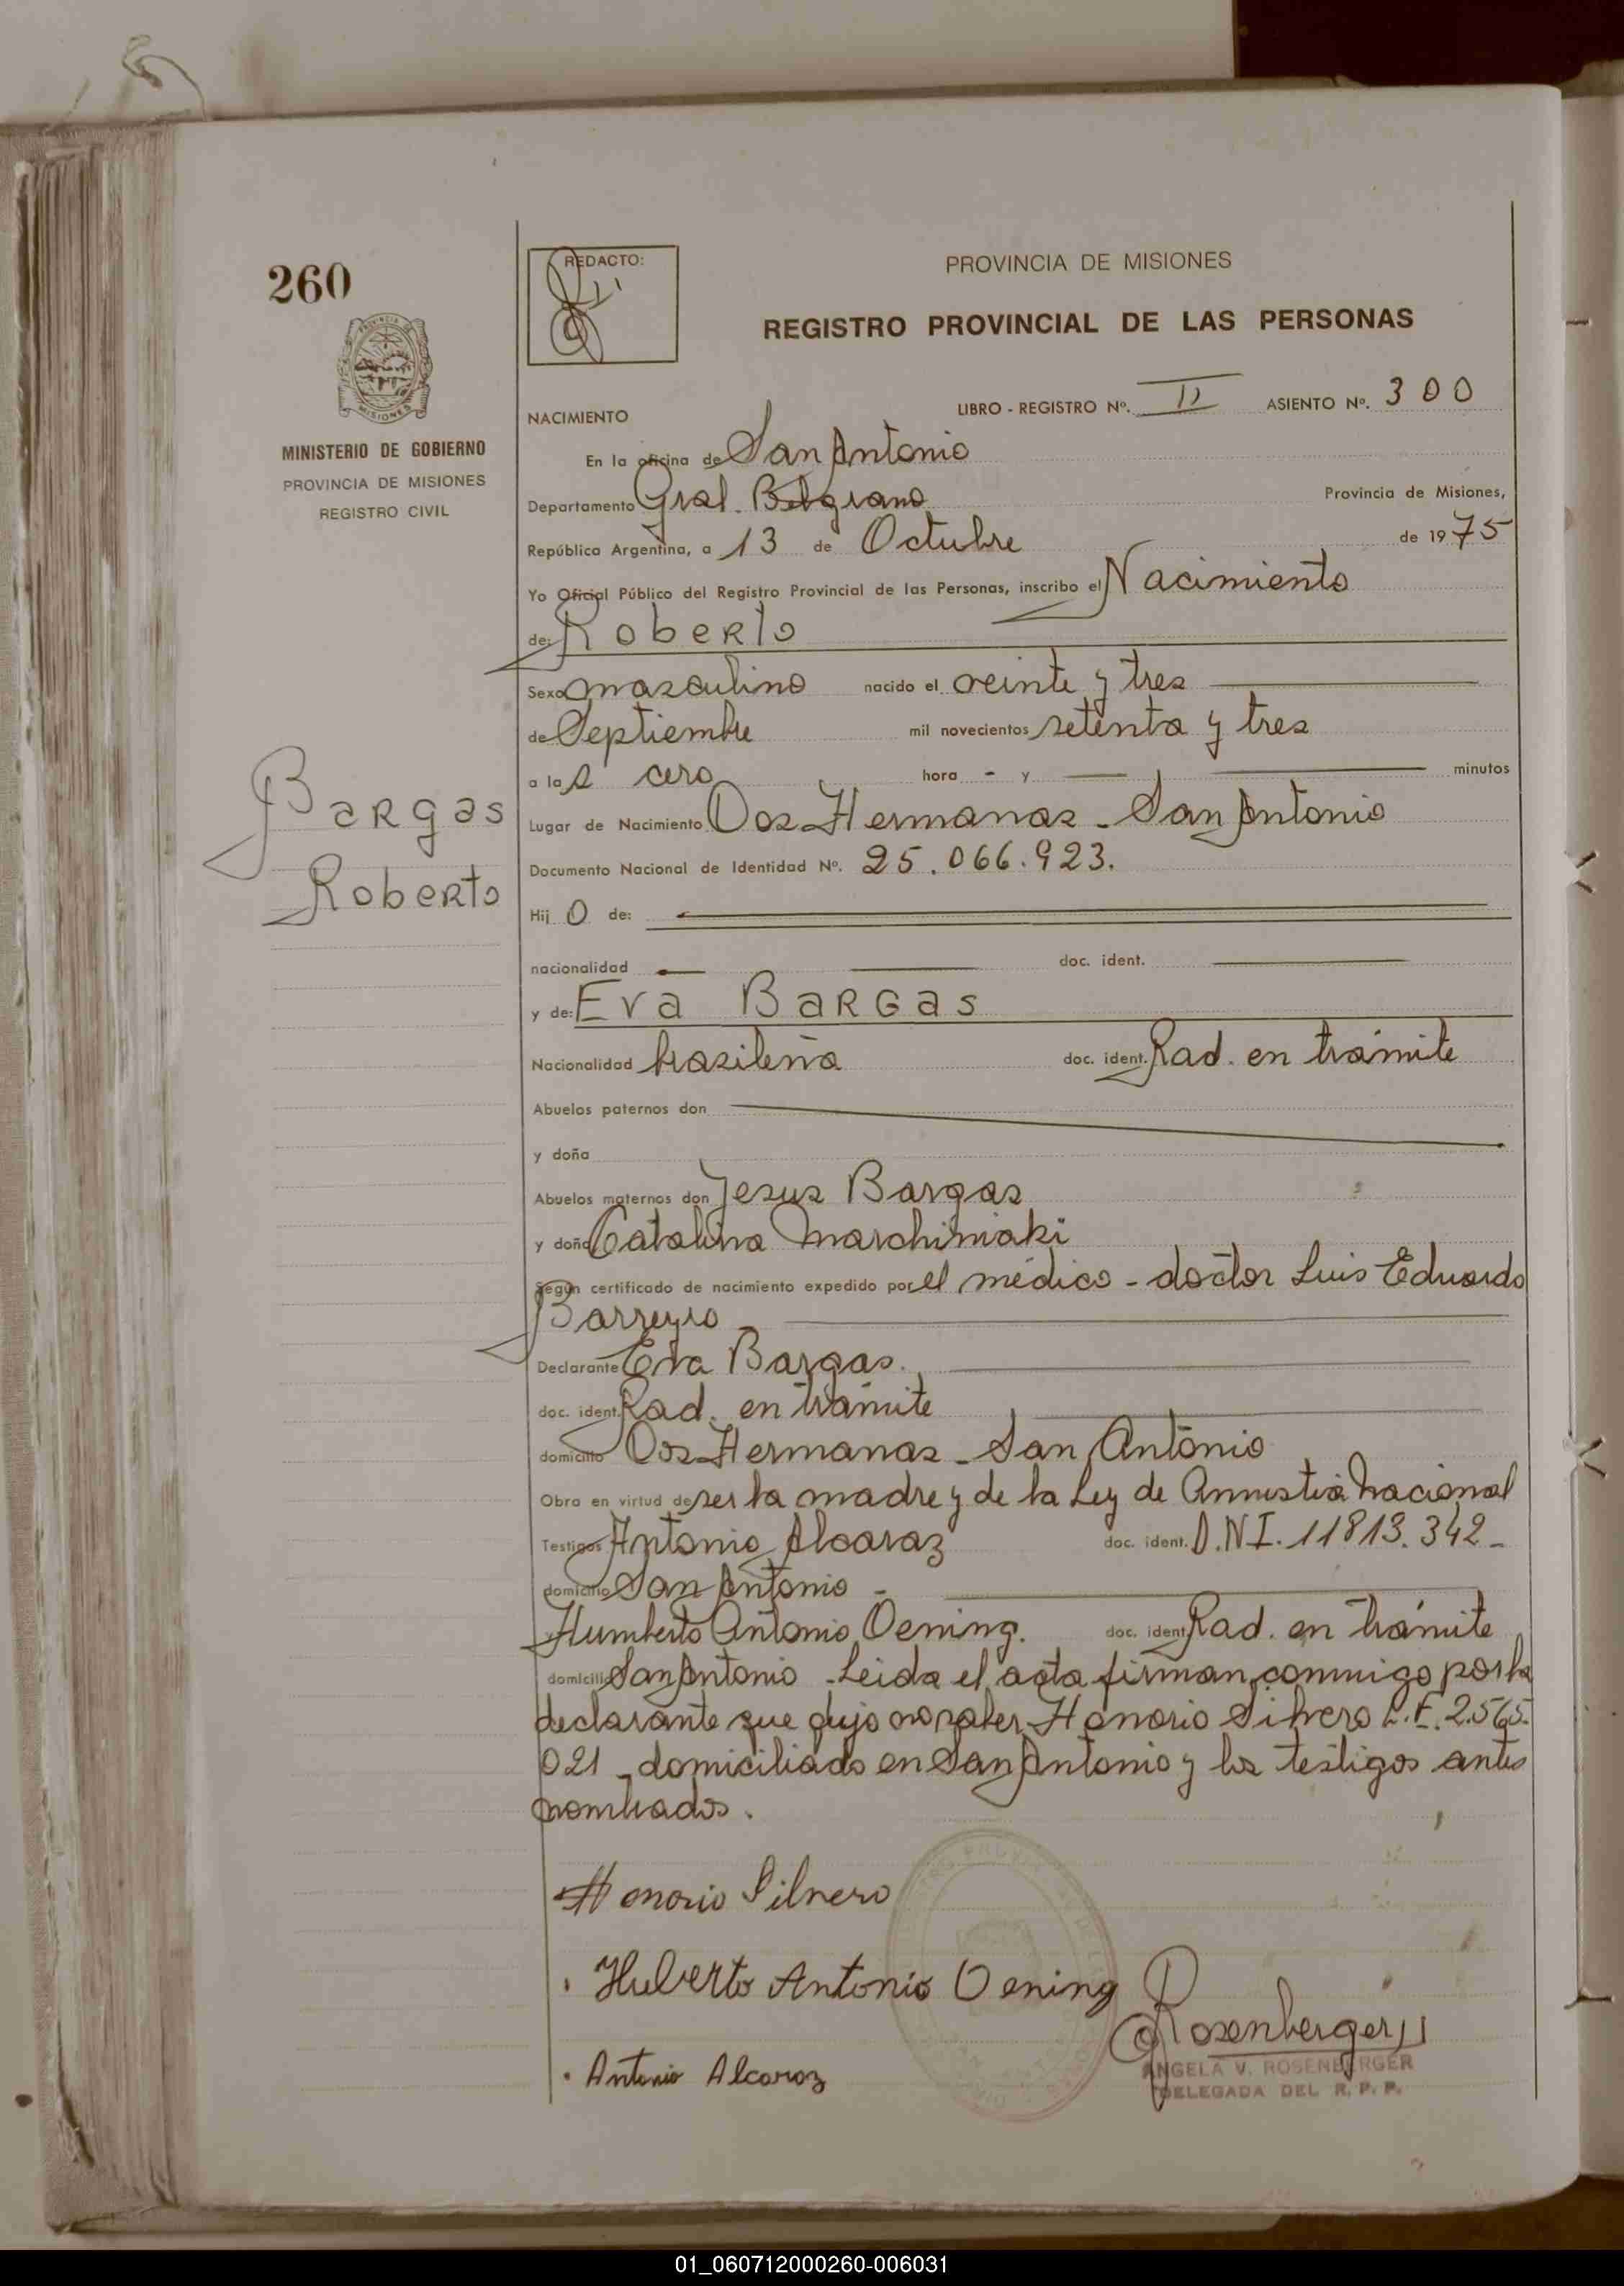 260
REDACTO:
PROVINCIA DE MISIONES
REGISTRO PROVINCIAL DE LAS PERSONAS
MISIONES
MINISTERIO DE GOBIERNO
PROVINCIA DE MISIONES
REGISTRO CIVIL
Bargas
Roberto
NACIMIENTO
LIBRO - REGISTRO Nº. II ASIENTO Nº. 300
En la oficina de San Antonio
Departamento Gral. Belgrano Provincia de Misiones,
República Argentina, a 13 de Octubre de 1975
Yo Oficial Público del Registro Provincial de las Personas, inscribo el Nacimiento
de: Roberto
Sexo masculino nacido el veinte y tres
de Septiembre mil novecientos setenta y tres
a las cero hora - y minutos
Lugar de Nacimiento Dos Hermanas - San Antonio
Documento Nacional de Identidad Nº. 25.066.923.
Hij o de:
nacionalidad doc. ident.
y de: Eva Bargas
Nacionalidad brasileña doc. ident. Rad. en trámite
Abuelos paternos don
y doña
Abuelos maternos don Jesus Bargas
y doña Catalina Marchiniaki
Según certificado de nacimiento expedido por el médico - doctor Luis Eduardo
Barreyro
Declarante Eva Bargas.
doc. ident. Rad. en trámite
domicilio Dos Hermanas - San Antonio
Obra en virtud de ser la madre y de la Ley de Amnistia Nacional
Testigos Antonio Alcaraz doc. ident. D.N.I. 11813.342-
domicilio San Antonio -
Humberto Antonio Oening. doc. ident. Rad. en trámite
domicilio San Antonio - Leida el acta firman conmigo por la
declarante que dijo no saber Honorio Silvero L.E. 2.565.
021 - domiciliado en San Antonio y los testigos antes
nombrados.
Honorio Silvero
Huberto Antonio Oening
Rosenberger
ANGELA V. ROSENBERGER
DELEGADA DEL R. P. P.
Antonio Alcaraz
01_060712000260-006031